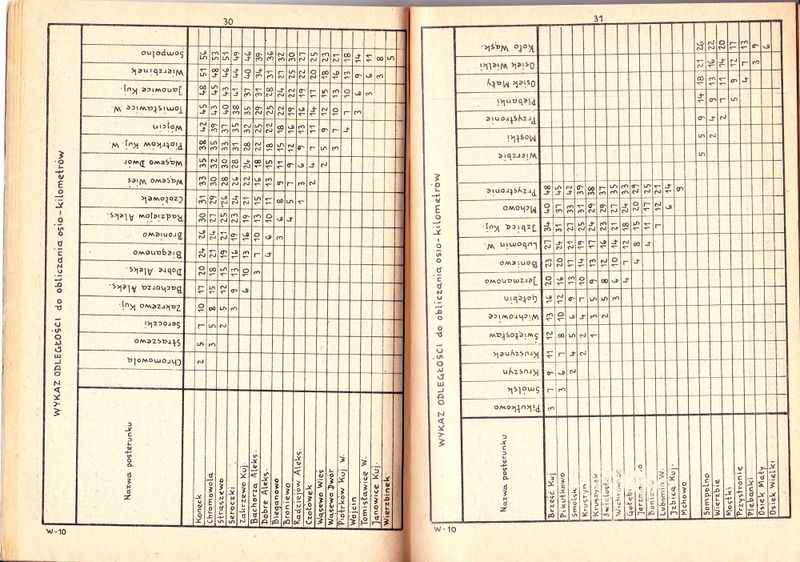 30
WYKAZ ODLEGŁOŚCI do obliczania osio-kilometrów
Sompolno 56 53 51 49 46 39 36 32 30 27 25 23 21 18 14 11 8 5
Wierzbinek 51 48 46 44 40 34 31 27 25 22 20 18 16 13 9 6 3
Janowice Kuj. 48 45 43 41 37 31 28 24 22 19 17 15 13 10 6 3
Tomisławice W. 45 43 40 38 35 29 25 22 19 16 14 12 10 7 3
Wójcin 42 39 37 35 32 25 22 18 16 13 11 9 7 4
Piotrków Kuj. W. 38 35 33 31 28 22 18 15 12 9 7 5 3
Wąsewo Dwór 35 32 30 28 24 18 15 11 9 6 4 2
Wąsewo Wieś 33 30 28 26 22 16 13 9 7 3 2
Czołówek 31 29 26 24 21 15 11 8 5 1
Radziejów Aleks. 30 27 25 23 19 13 10 6 4
Broniewo 26 24 21 19 16 10 6 3
Biegonowo 24 21 19 16 13 7 4
Dobre Aleks. 20 18 15 13 10 3
Bachorza Aleks. 17 15 12 9 6
Zakrzewo Kuj. 10 8 5 3
Seroczki 7 5 2
Straszewo 5 3
Chromowola 2
Nazwa posterunku
Koneck
Chromowola
Straszewo
Seroczki
Zakrzewo Kuj.
Bachorza Aleks.
Dobre Aleks.
Biegonowo
Broniewo
Radziejów Aleks.
Czołówek
Wąsewo Wieś
Wąsewo Dwór
Piotrków Kuj. W.
Wójcin
Tomisławice W.
Janowice Kuj.
Wierzbinek
W-10
31
WYKAZ ODLEGŁOŚCI do obliczania osio-kilometrów
Koło Wąsk. 26 22 20 17 13 9 6
Osiek Wielki 21 16 14 12 7 3
Osiek Mały 18 13 11 9 4
Plebanki 14 9 7 5
Przystronie 9 4 2
Mostki 5 2
Wierzbie 5
Przystronie 48 45 42 39 38 37 35 33 29 25 21 14 9
Mchowo 40 37 33 31 29 29 27 24 20 17 12 6
Izbica Kuj. 34 31 27 24 24 23 21 18 15 11 7
Lubomin W. 27 24 21 19 17 16 14 12 8 4
Boniewo 23 20 17 14 13 12 10 7 4
Jerzmanowo 20 16 13 10 9 8 6 4
Gołębin 16 12 9 7 5 5 3
Wichrowice 13 10 6 4 3 2
Świętosław 12 8 5 2 1
Kruszynek 11 7 4 2
Kruszyn 9 6 2
Smólsk 7 3
Pikutkowo 3
Nazwa posterunku
Brześć Kuj.
Pikutkowo
Smólsk
Kruszyn
Kruszynek
Wichrowice
Boniewo
Lubomin W.
Izbica Kuj.
Mchowo
Sompolno
Wierzbie
Mostki
Przystronie
Plebanki
Osiek Mały
Osiek Wielki
W-10